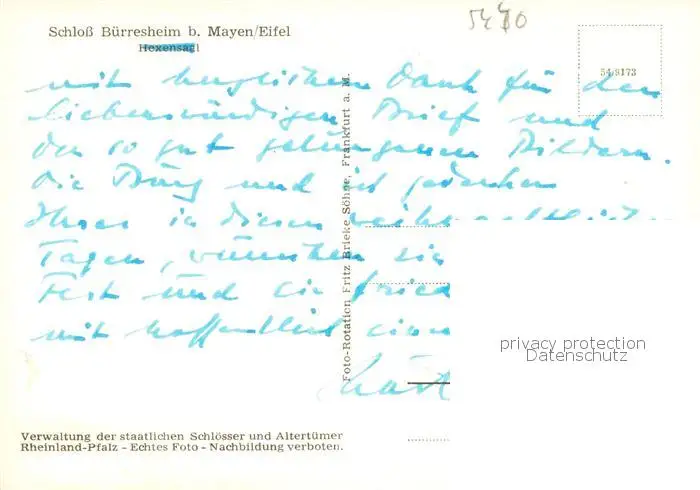 5470
Schloß Bürresheim b. Mayen/Eifel
Hexensaal
54/9173
mit herzlichem Dank für den
liebenswürdigen Brief und
die so gut gelungenen Bildern.
Die Burg und ich gedenken
Ihrer in diesen
Tagen, wünschen ein
Fest und ein
mit hoffentlich einem
Foto-Rotation Fritz Brieke Söhne, Frankfurt a. M.
privacy protection
Datenschutz
Verwaltung der staatlichen Schlösser und Altertümer
Rheinland-Pfalz - Echtes Foto - Nachbildung verboten.